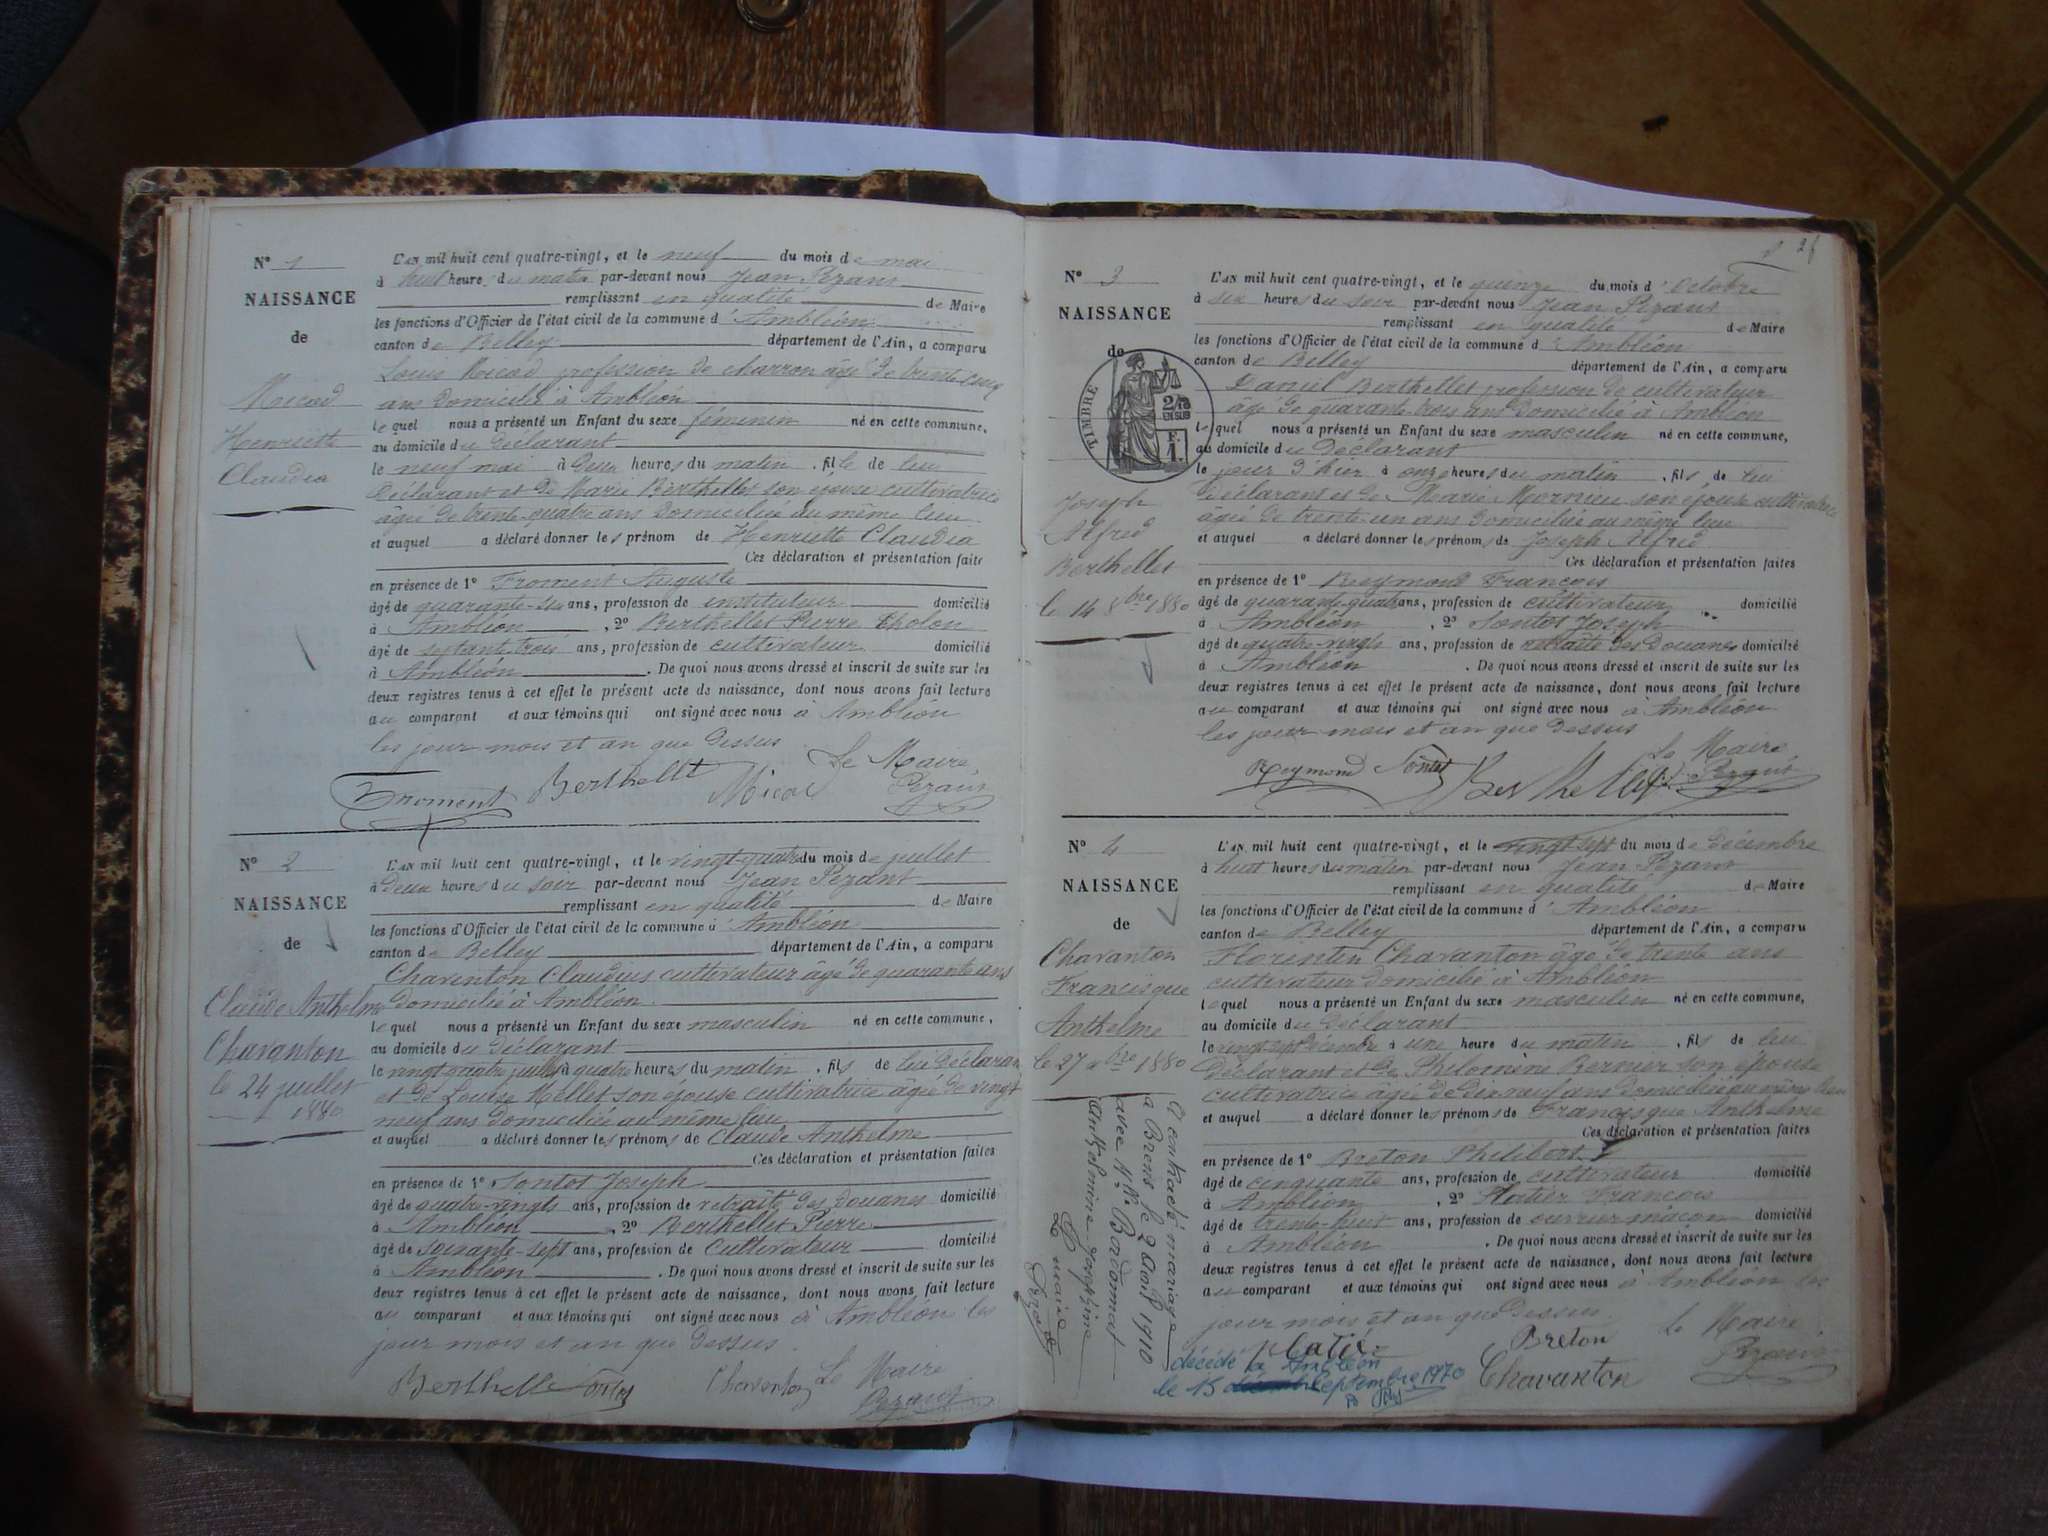 N° 1
NAISSANCE
de
Micod
Henriette
Claudia
L'AN mil huit cent quatre-vingt, et le neuf du mois de mai
à huit heure du matin par-devant nous Jean Pezant
remplissant en qualité de Maire
les fonctions d'Officier de l'état civil de la commune d'Ambléon
canton de Belley département de l'Ain, a comparu
Louis Micod profession de charron âgé de trente-cinq
ans domicilié à Ambléon
lequel nous a présenté un Enfant du sexe féminin né en cette commune,
au domicile du déclarant
le neuf mai à deux heures du matin, fille de lui
déclarant et de Marie Berthellet son épouse cultivatrice
âgée de trente-quatre ans domiciliée au même lieu
et auquel a déclaré donner les prénom de Henriette Claudia
Ces déclaration et présentation faites
en présence de 1° Froment Auguste
âgé de quarante-six ans, profession de instituteur domicilié
à Ambléon, 2° Berthellet Pierre Tholon
âgé de septante trois ans, profession de cultivateur domicilié
à Ambléon. De quoi nous avons dressé et inscrit de suite sur les
deux registres tenus à cet effet le présent acte de naissance, dont nous avons fait lecture
au comparant et aux témoins qui ont signé avec nous à Ambléon
les jour mois et an que dessus
Le Maire
Froment Berthellet Micod Pezant
N° 2
NAISSANCE
de
Claude Anthelme
Chavanton
le 24 juillet
1880
L'AN mil huit cent quatre-vingt, et le vingt-quatre du mois de juillet
à deux heures du soir par-devant nous Jean Pezant
remplissant en qualité de Maire
les fonctions d'Officier de l'état civil de la commune d'Ambléon
canton de Belley département de l'Ain, a comparu
Chaventon Claudius cultivateur âgé de quarante ans
domicilié à Ambléon
lequel nous a présenté un Enfant du sexe masculin né en cette commune,
au domicile du déclarant
le vingt quatre juillet à quatre heures du matin, fils de lui déclarant
et de Louise Mellet son épouse cultivatrice âgée de vingt
neuf ans domiciliée au même lieu
et auquel a déclaré donner les prénoms de Claude Anthelme
Ces déclaration et présentation faites
en présence de 1° Sontot Joseph
âgé de quatre-vingts ans, profession de retraité des Douanes domicilié
à Ambléon, 2° Berthellet Pierre
âgé de soixante-sept ans, profession de cultivateur domicilié
à Ambléon. De quoi nous avons dressé et inscrit de suite sur les
deux registres tenus à cet effet le présent acte de naissance, dont nous avons fait lecture
au comparant et aux témoins qui ont signé avec nous à Ambléon les
jour mois et an que dessus
Le Maire
Berthellet Chaventon Pezant
N° 3
NAISSANCE
de
TIMBRE
2/10
EN SUS
F.
1.
Joseph
Alfred
Berthellet
le 14 8bre 1880
L'AN mil huit cent quatre-vingt, et le quinze du mois d'Octobre
à six heures du soir par-devant nous Jean Pezant
remplissant en qualité de Maire
les fonctions d'Officier de l'état civil de la commune d'Ambléon
canton de Belley département de l'Ain, a comparu
Daniel Berthellet profession de cultivateur
âgé de quarante-trois ans domicilié à Ambléon
lequel nous a présenté un Enfant du sexe masculin né en cette commune,
au domicile du déclarant
le jour d'hier à onze heures du matin, fils de lui
déclarant et de Marie son épouse cultivatrice
âgée de trente-un ans domiciliée au même lieu
et auquel a déclaré donner les prénoms de Joseph Alfred
Ces déclaration et présentation faites
en présence de 1° Reymond François
âgé de quarante-quatre ans, profession de cultivateur domicilié
à Ambléon, 2° Sontot Joseph
âgé de quatre-vingts ans, profession de retraité des Douanes domicilié
à Ambléon. De quoi nous avons dressé et inscrit de suite sur les
deux registres tenus à cet effet le présent acte de naissance, dont nous avons fait lecture
au comparant et aux témoins qui ont signé avec nous à Ambléon
les jour mois et an que dessus
Le Maire
Reymond Sontot Berthellet Pezant
N° 4
NAISSANCE
de
Chavanton
Francisque
Anthelme
le 27 xbre 1880
A contracté mariage
à Brens le 2 Avril 1910
avec Mlle Bordonnat
Anthelmine Joséphine
Le maire
L'AN mil huit cent quatre-vingt, et le vingt sept du mois de Décembre
à huit heures du matin par-devant nous Jean Pezant
remplissant en qualité de Maire
les fonctions d'Officier de l'état civil de la commune d'Ambléon
canton de Belley département de l'Ain, a comparu
Florentin Chavanton âgé de trente ans
cultivateur domicilié à Ambléon
lequel nous a présenté un Enfant du sexe masculin né en cette commune,
au domicile du déclarant
le vingt sept décembre à une heure du matin, fils de lui
déclarant et de Philomène Bernier son épouse
cultivatrice âgée de dix neuf ans domiciliée au même lieu
et auquel a déclaré donner les prénoms de Francisque Anthelme
Ces déclaration et présentation faites
en présence de 1° Breton Philibert
âgé de cinquante ans, profession de cultivateur domicilié
à Ambléon, 2° Platier François
âgé de trente-huit ans, profession de ouvrier maçon domicilié
à Ambléon. De quoi nous avons dressé et inscrit de suite sur les
deux registres tenus à cet effet le présent acte de naissance, dont nous avons fait lecture
au comparant et aux témoins qui ont signé avec nous à Ambléon les
jour mois et an que dessus
Platié Breton Le Maire
Chavanton Pezant
décédé à Ambléon
le 15 Septembre 1970